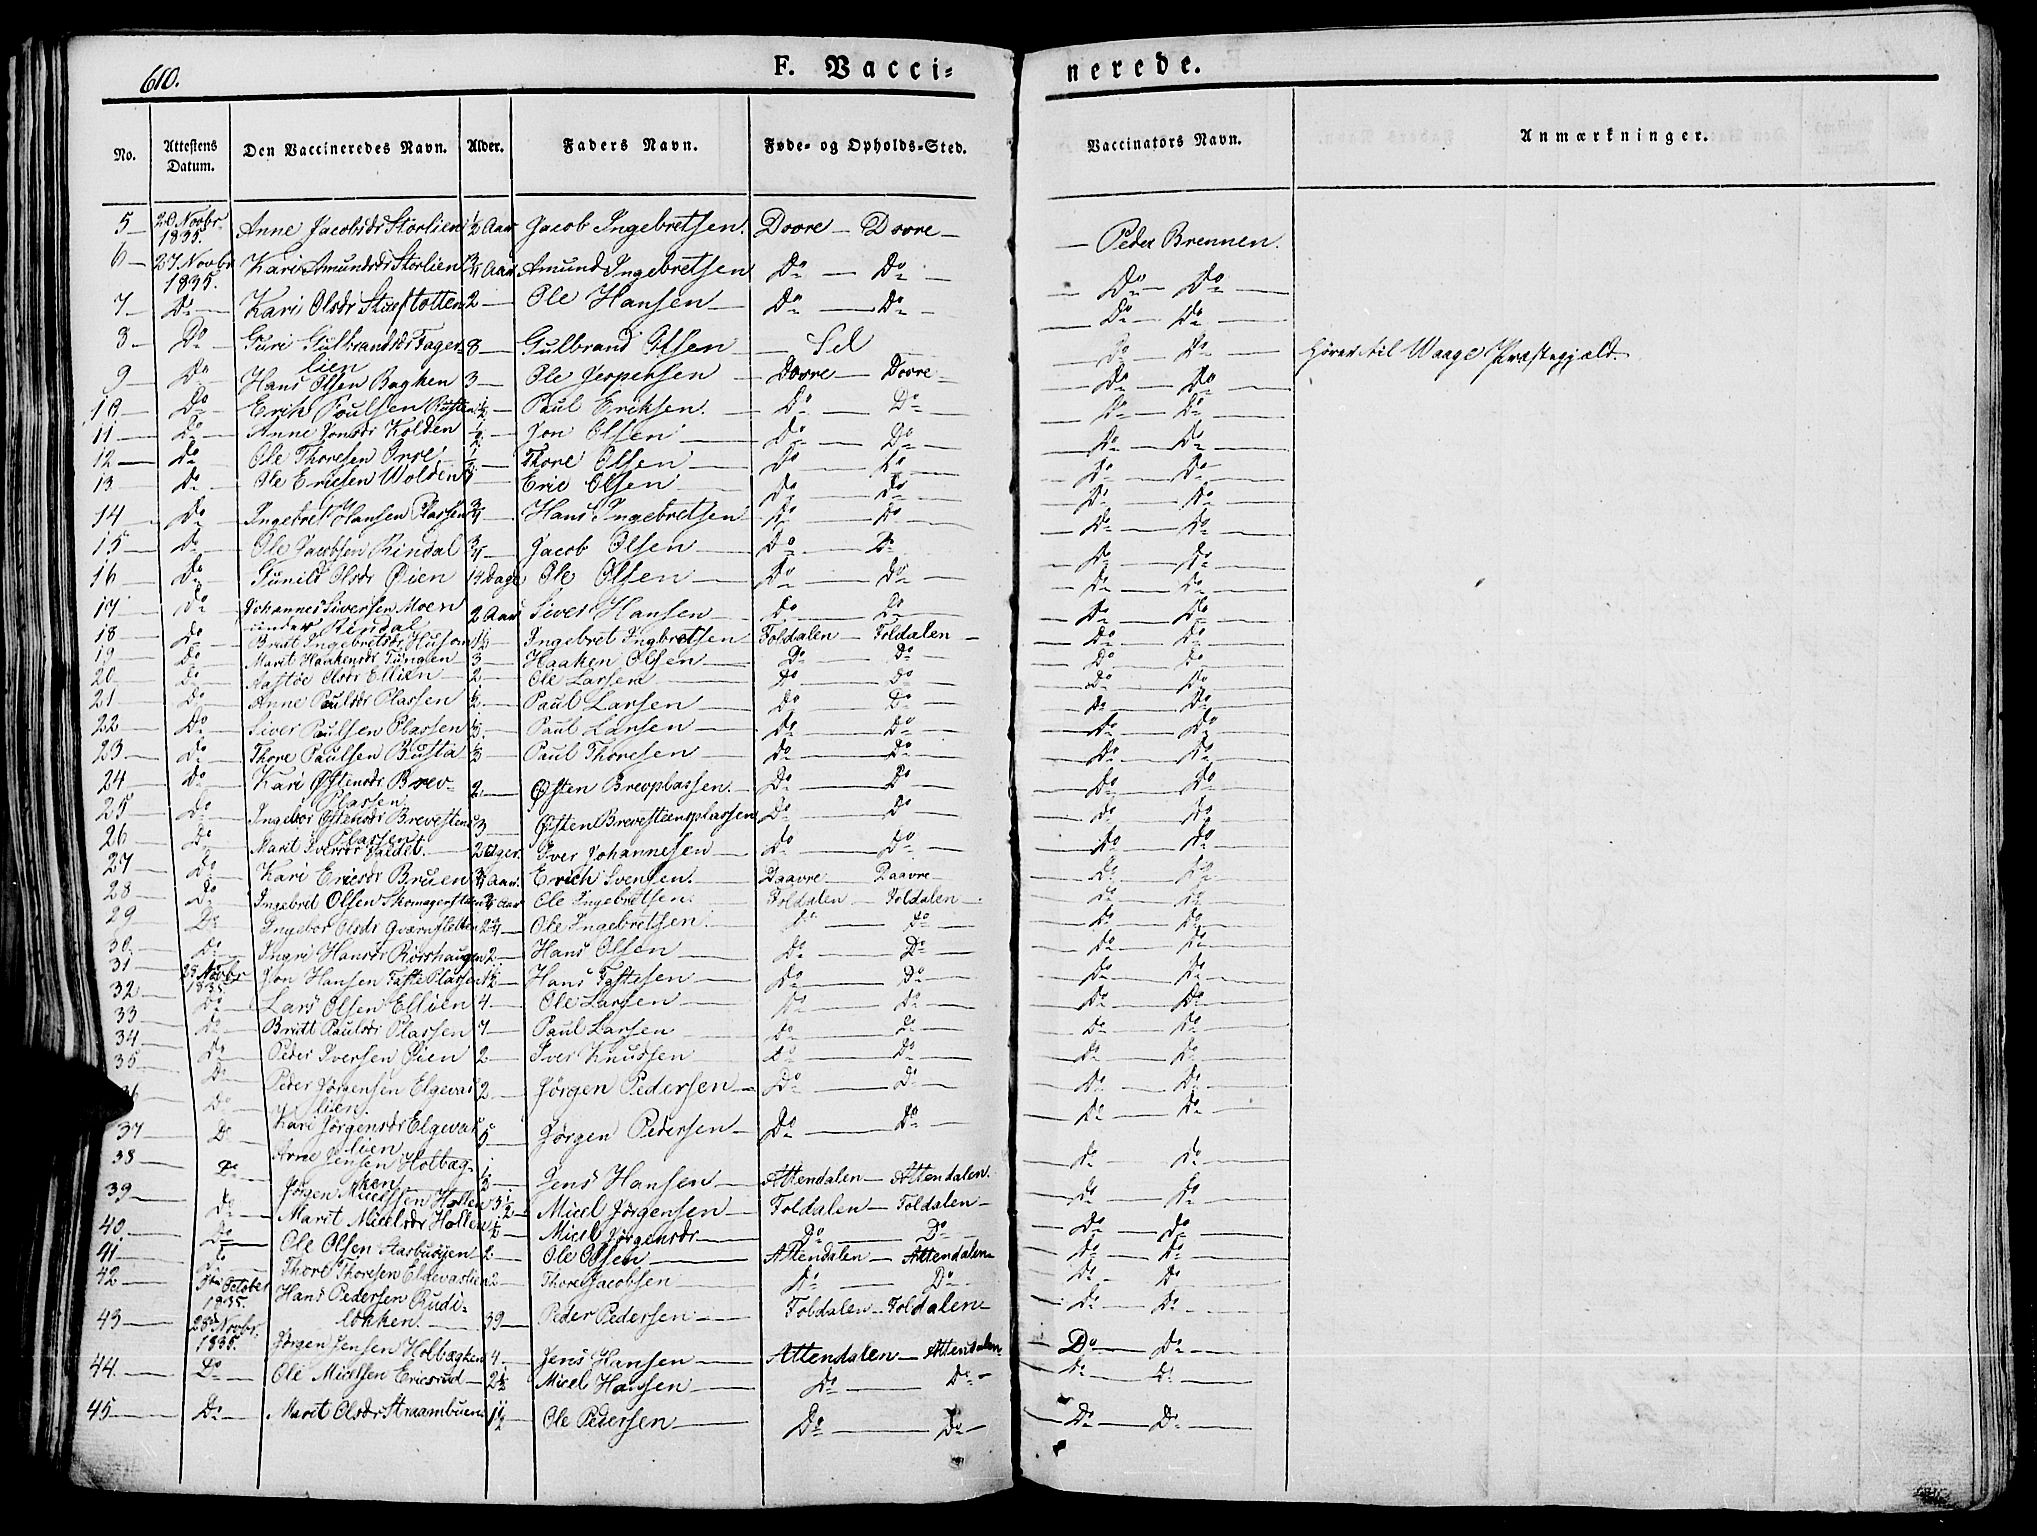 610.
F. Vacci-
nerede.
No. Attestens Datum. Den Vaccineredes Navn. Alder. Faders Navn. Føde- og Opholds-Sted. Vaccinators Navn. Anmærkninger.
5 20 Novbr 1835. Anne Jacobsdr Storlien 1/2 Aar Jacob Ingebretsen. Dovre — Dovre — Peder Brennen.
6 27 Novbr 1835. Kari Amundsdr Storlien 3/4 Aar Amund Ingebretsen Do — Do — Do — Do
7 Do Kari Olsdr 2 Ole Hansen Do — Do — Do — Do
8 Do Guri Gulbrandsdr Fagerlien 8 Gulbrand Olsen Sel Do — Do hører til Waage Præstegjæld.
9 Do Hans Olsen Bagken 3 Ole Jespersen Dovre — Dovre Do — Do
10 Do Erik Poulsen Rusten 1/2 Paul Eriksen. Do Do Do — Do
11 Do Anne Jonsdr Kolden 1/2 Jon Olsen Do Do Do — Do
12 Do Ole Thoresen 1/2 Thore Olsen Do Do Do — Do
13 Do Ole Ericsen Wolden Eric Olsen Do Do Do — Do
14 Do Ingebret Hansen Plassen 3/4 Hans Ingebretsen Do Do Do — Do
15 Do Ole Jacobsen Rindal 3/4 Jacob Olsen Do Do Do — Do
16 Do Gunild Olsdr Øien 14 Dage Ole Olsen Do Do Do — Do
17 Do Johannes Siversen Moen under Rindal 2 Aar Siver Hansen Do Do Do — Do
18 Do Britt Ingebretsdr Husom 1 1/2 Ingebret Ingbretsen Foldalen — Foldalen — Do — Do
19 Do Marit Haakensdr 3 Haaken Olsen Do Do Do — Do
20 Do Olsdr Ellien 2 Ole Larsen Do Do Do — Do
21 Do Anne Paulsdr Plassen 1/2 Paul Larsen Do Do Do — Do
22 Do Siver Paulsen Plassen Paul Larsen Do Do Do — Do
23 Do Thore Paulsen Busta 3 Paul Thoresen Do Do Do — Do
24 Do Kari Østensdr Brev-Plassen. 2 Østen Brevplassen. Do Do Do — Do
25 Do Ingebor Østensdr Brevestens Plassen 3 Østen Brevesteensplassen Do Do Do — Do
26 Do Marit Iversdr 2 Uger. Iver Johannesen Do Do Do — Do
27 Do Kari Ericsdr Bruen 3/4 Aar. Erich Svensen. Daavre Daavre Do — Do
28 Do Ingebret Olsen 3/4 Aar Ole Ingebretsen. Foldalen — Foldalen — Do — Do
29 Do Ingebor Olsdr 2 3/4 Ole Ingebretsen. Do Do Do — Do
30 Do Ingri Hansdr 2 Hans Olsen Do Do Do — Do
31 29 Novbr 1835 Jon Hansen Plassen 1/2 Hans Do Do Do — Do
32 Do Lars Olsen Ellien 4 Ole Larsen Do Do Do — Do
33 Do Britt Paulsdr Plassen 7 Paul Larsen Do Do Do — Do
34 Do Peder Iversen Øien 2 Iver Knudsen Do Do Do — Do
35 Do Peder Jørgensen Elgevaslien. 2 Jørgen Pedersen Do Do Do — Do
36 Do Kari Jørgensdr Elgevaslien 5 Jørgen Pedersen Do Do Do — Do
37 Do Arne Jensen Holbægken 1/2 Jens Hansen Attendalen — Attendalen. Do — Do
38 Do Jørgen Micelsen Holten 3 1/2 Micel Jørgensen Foldalen — Foldalen Do — Do
39 Do Marit Micelsdr Holten 1/2 Micel Jørgensdr Do Do Do — Do
40. Do Ole Olsen 2 Ole Olsen Attendalen — Attendalen Do — Do
41 Do Thore Thoresen 2 Thore Jacobsen Do Do Do — Do
42 October 1835. Hans Pedersen Rudiløkken. 39 Peder Pedersen Foldalen — Foldalen Do — Do
43 28 Novbr. 1835. Jørgen Jensen Holbægken 4 Jens Hansen Attendalen — Attendalen Do — Do
44. Do Ole Micelsen Ericsrud 2 1/2 Micel Hansen Do Do Do — Do
45 Do Marit Olsdr Straambuen 1 1/2 Ole Pedersen Do Do Do — Do